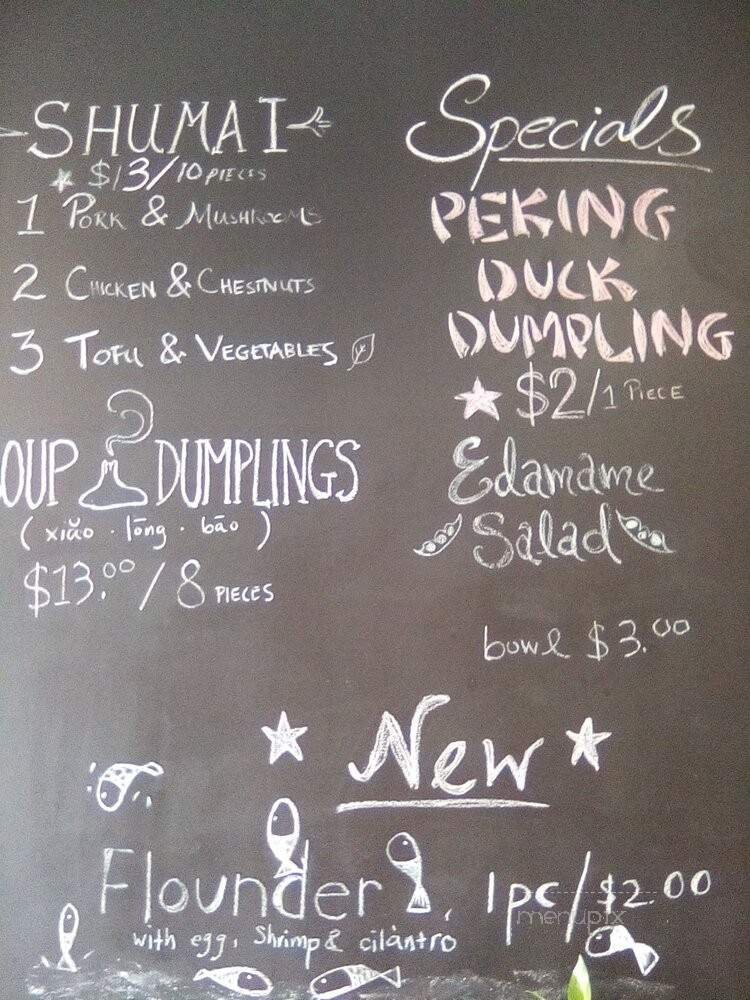 SHUMAI
$13/10 PIECES
1 PORK & MUSHROOMS
2 CHICKEN & CHESTNUTS
3 TOFU & VEGETABLES
OUP DUMPLINGS
(xiǎo · lōng · bāo)
$13.00 / 8 PIECES
Specials
PEKING
DUCK
DUMPLING
$2/1 PIECE
Edamame
Salad
bowl $3.00
New
Flounder, 1pc/$2.00
with egg, Shrimp & cilantro
menupix